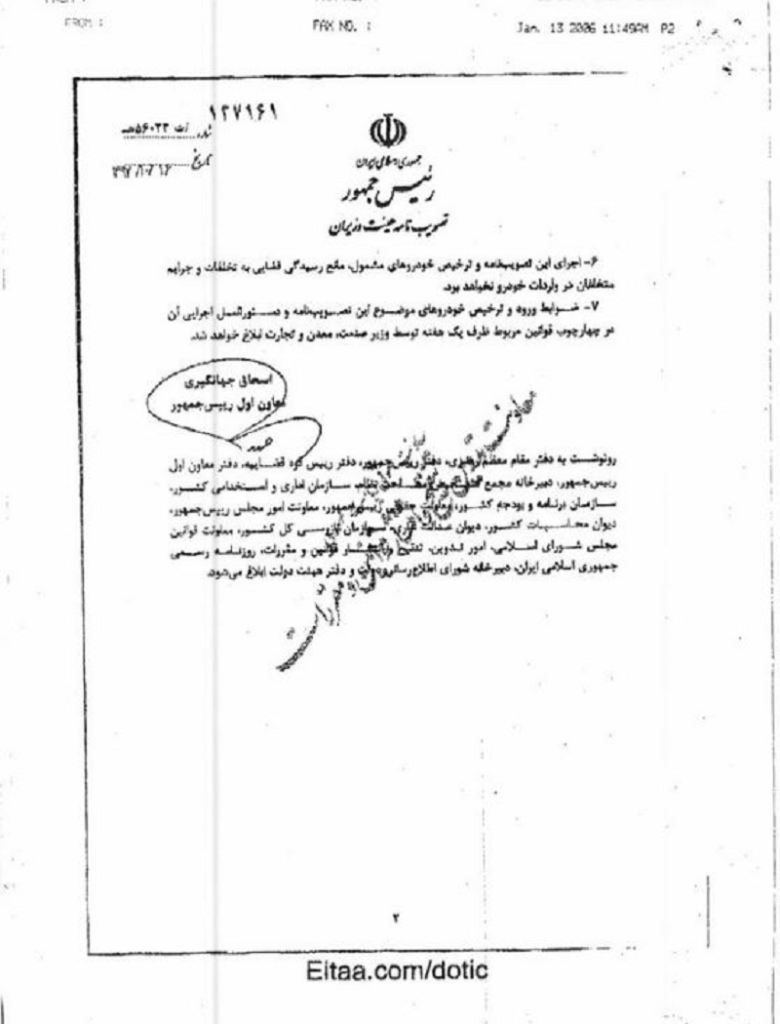 FROM :
FAX NO. :
Jan. 13 2006 11:49AM P2
۱۳۷۱۶۱
شماره
تاریخ
جمهوری اسلامی ایران
رئیس جمهور
تصویب نامه هیئت وزیران
۶- اجرای این تصویب‌نامه و ترخیص خودروهای مشمول، مانع رسیدگی قضایی به تخلفات و جرایم
متخلفان در واردات خودرو نخواهد بود.
۷- شرایط ورود و ترخیص خودروهای موضوع این تصویب‌نامه و دستورالعمل اجرایی آن
در چهارچوب قوانین مربوط ظرف یک هفته توسط وزیر صنعت، معدن و تجارت ابلاغ خواهد شد.
اسحاق جهانگیری
معاون اول رییس‌جمهور
رونوشت به دفتر مقام معظم رهبری، دفتر رییس‌جمهور، دفتر رییس قوه قضاییه، دفتر معاون اول
رییس‌جمهور، دبیرخانه مجمع تشخیص مصلحت نظام، سازمان اداری و استخدامی کشور،
سازمان برنامه و بودجه کشور، معاونت حقوقی رییس‌جمهور، معاونت امور مجلس رییس‌جمهور،
دیوان محاسبات کشور، دیوان عدالت اداری، سازمان بازرسی کل کشور، معاونت قوانین
مجلس شورای اسلامی، امور تدوین، تنقیح و انتشار قوانین و مقررات، روزنامه رسمی
جمهوری اسلامی ایران، دبیرخانه شورای اطلاع‌رسانی دولت و دفتر هیئت دولت ابلاغ می‌شود.
۲
Eitaa.com/dotic